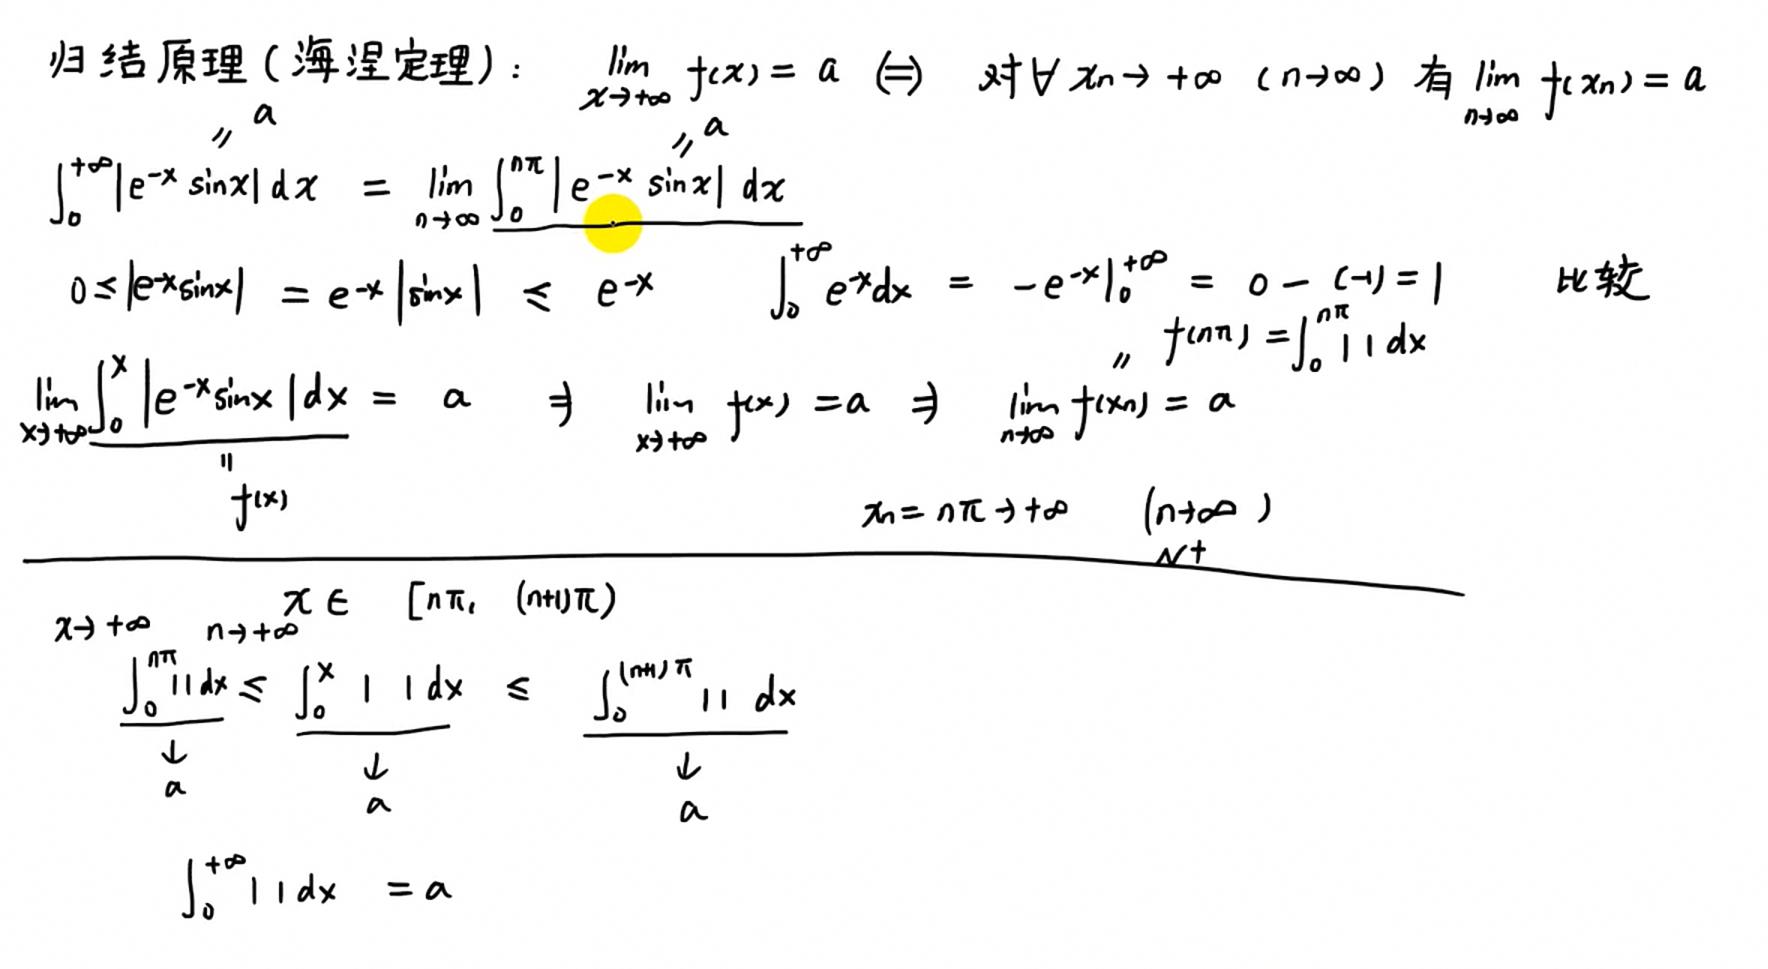 归结原理(海涅定理): lim x→+∞ f(x) = a ⇔ 对∀ xn→+∞ (n→∞) 有 lim n→∞ f(xn) = a
〃 a 〃 a
∫₀^{+∞} |e^{-x} sinx| dx = lim n→∞ ∫₀^{nπ} |e^{-x} sinx| dx
0≤|e^{-x}sinx| = e^{-x}|sinx| ≤ e^{-x} ∫₀^{+∞} e^{-x}dx = -e^{-x}|₀^{+∞} = 0 - (-1) = 1 比较
〃 f(nπ) = ∫₀^{nπ} | | dx
lim x→+∞ ∫₀^x |e^{-x}sinx|dx = a ⇒ lim x→+∞ f(x) = a ⇒ lim n→∞ f(xn) = a
〃
f(x)
xn = nπ → +∞ (n→∞)
N+
x ∈ [nπ, (n+1)π)
x→+∞ n→+∞
∫₀^{nπ} | | dx ≤ ∫₀^x | | dx ≤ ∫₀^{(n+1)π} | | dx
↓ ↓ ↓
a a a
∫₀^{+∞} | | dx = a